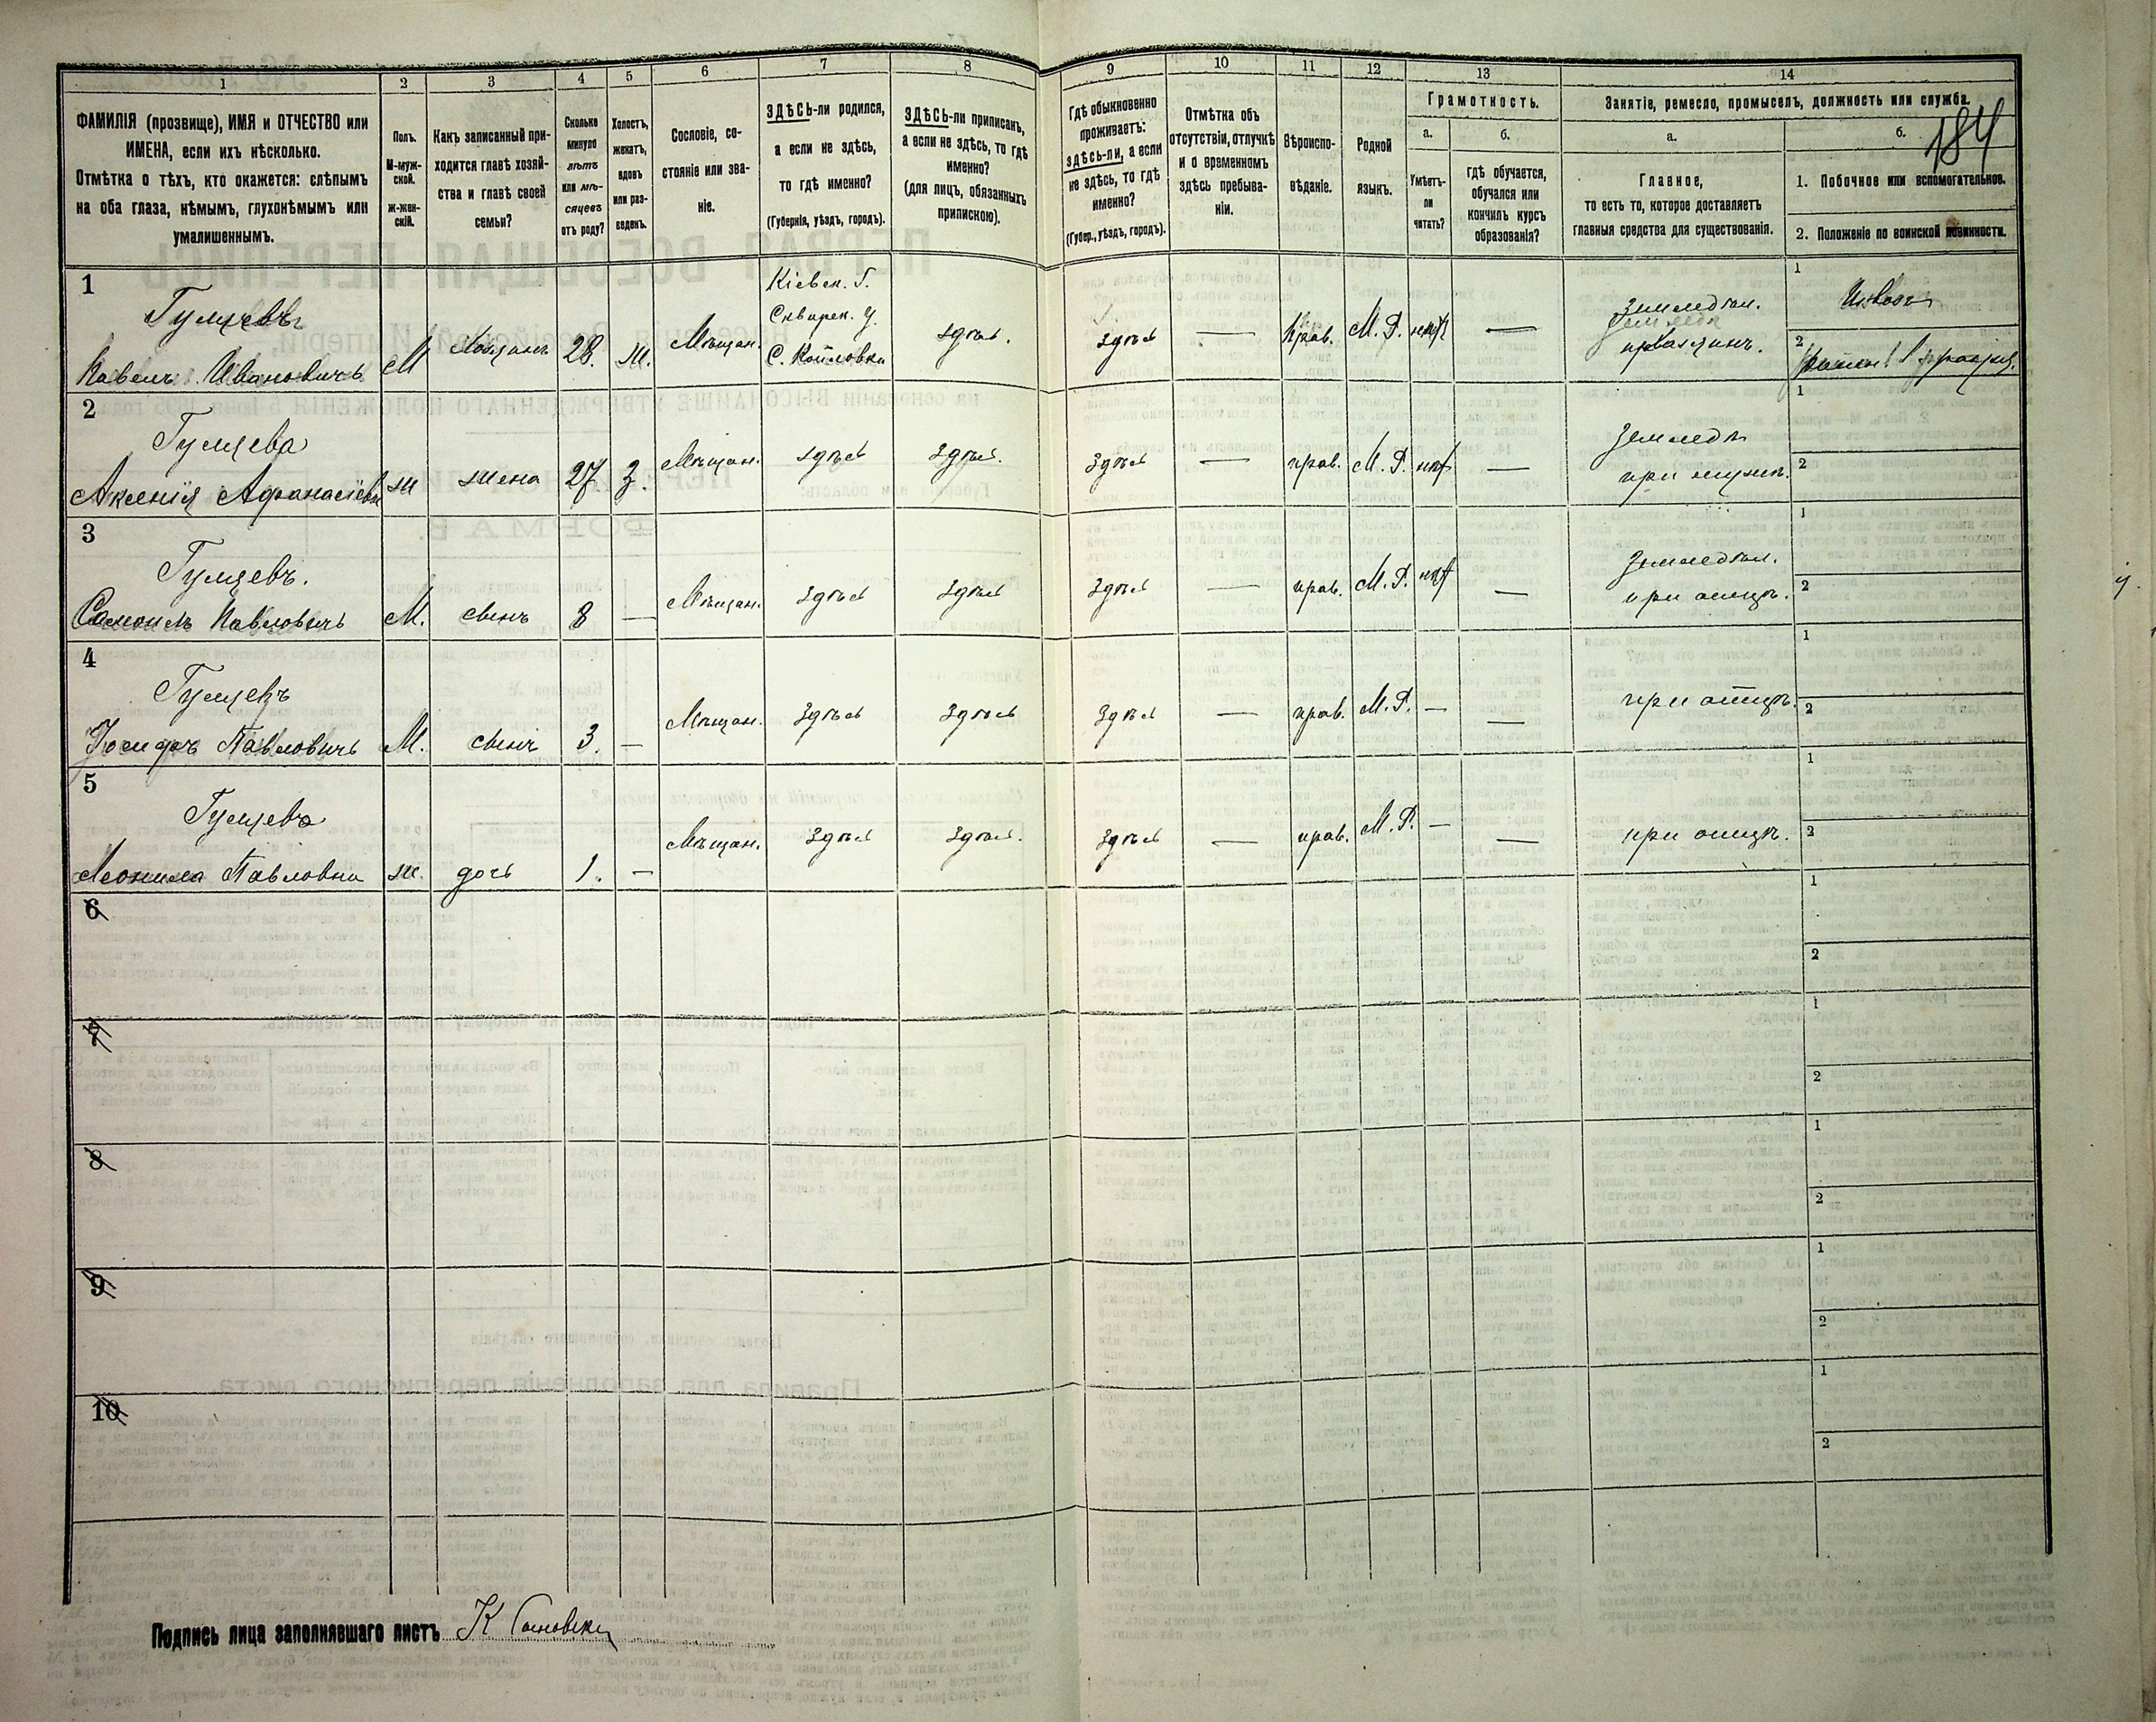 184
1
2
3
4
5
6
7
8
9
10
11
12
13
14
ФАМИЛІЯ (прозвище), ИМЯ и ОТЧЕСТВО или
ИМЕНА, если ихъ нѣсколько.
Отмѣтка о тѣхъ, кто окажется: слѣпымъ
на оба глаза, нѣмымъ, глухонѣмымъ или
умалишеннымъ.
Полъ.
М-муж-
ской.
ж-жен-
скій.
Какъ записанный при-
ходится главѣ хозяй-
ства и главѣ своей
семьи?
Сколько
минуло
лѣтъ
или мѣ-
сяцевъ
отъ роду?
Холостъ,
женатъ,
вдовъ
или раз-
веденъ.
Сословіе, со-
стояніе или зва-
ніе.
ЗДѢСЬ-ли родился,
а если не здѣсь,
то гдѣ именно?
(Губернія, уѣздъ, городъ).
ЗДѢСЬ-ли приписанъ,
а если не здѣсь, то гдѣ
именно?
(для лицъ, обязанныхъ
припискою).
Гдѣ обыкновенно
проживаетъ:
здѣсь-ли, а если
не здѣсь, то гдѣ
именно?
(Губер., уѣздъ, городъ).
Отмѣтка объ
отсутствіи, отлучкѣ
и о временномъ
здѣсь пребыва-
ніи.
Вѣроиспо-
вѣданіе.
Родной
языкъ.
Грамотность.
а.
Умѣетъ-
ли
читать?
б.
гдѣ обучается,
обучался или
кончилъ курсъ
образованія?
Занятіе, ремесло, промыселъ, должность или служба.
а.
Главное,
то есть то, которое доставляетъ
главныя средства для существованія.
б.
1. Побочное или вспомогательное.
2. Положеніе по воинской повинности.
1
Гумцевъ
Павелъ Ивановичъ
М
хозяинъ
28.
ж.
Мѣщан.
Кіевск. Г.
Сквирск. У.
С.
здѣсь.
здѣсь
—
прав.
М. Р.
нѣтъ
—
земледѣл.
1
Извозъ
2
2
Гумцева
Аксенія Афанасіевна
ж
жена
27
з.
Мѣщан.
здѣсь
здѣсь.
здѣсь
—
прав.
М. Р.
нѣт
—
земледѣ
при мужѣ.
1
2
3
Гумцевъ.
Самоилъ Павловичъ
М.
сынъ
8
—
Мѣщан.
здѣсь
здѣсь
здѣсь
—
прав.
М. Р.
нѣт
—
земледѣл.
при отцѣ.
1
2
4
Гумцевъ
Іосифъ Павловичъ
М.
сынъ
3.
—
Мѣщан.
здѣсь
здѣсь
здѣсь
—
прав.
М. Р.
—
—
при отцѣ.
1
2
5
Гумцева
Леонила Павловна
ж.
дочь
1.
—
Мѣщан.
здѣсь
здѣсь.
здѣсь
—
прав.
М. Р.
—
—
при отцѣ.
1
2
6
1
2
7
1
2
8
1
2
9
1
2
10
1
2
Подпись лица заполнявшаго листъ К